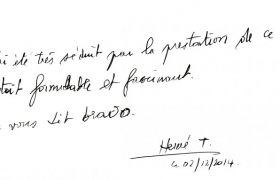 i été très séduit par la prestation de ce
tait formidable et fascinant.
vous dit bravo.
Hervé T.
Le 02/12/2014.